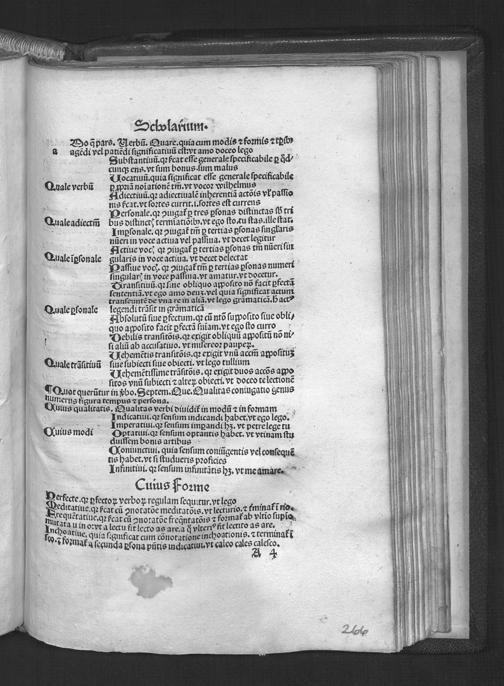 Scholarium.
Do q̄ pars. Verbū. Quare. quia cum modis ⁊ formis ⁊ tp̄ib⁹
a agēdi vel patiēdi significatiuū est: vt amo doceo lego
Substantiuū. qꝛ ſcat esse generale specificabile p qd̄
cunqꝫ ens. vt sum bonus sum malus
Vocatiuū. quia significat esse generale specificabile
Quale verbū p ꝓpriā noīationē tm̄. vt vocor wilhelmus
Adiectiuū. qꝛ adiectiuale inherentiā actōis vl' passio
nis ſcat. vt sortes currit. i. sortes est currens
Personale. qꝛ ꝯiugat̄ p tres psonas distinctas sb̄ tri
Quale adiectm̄ bus distinct̄ termiatiōib⁹. vt ego sto. tu stas. ille stat.
Imp̄sonale. qꝛ ꝯiugat̄ tm̄ p tertias psonas singl̄aris
nūeri in voce actiua vel passiua. vt decet legitur
Actiue voc̄. qꝛ ꝯiugat̄ p tertias psonas tm̄ nūeri sin
Quale īp̄sonale gularis in voce actiua. vt decet delectat
Passiue voc̄. qꝛ ꝯiugat̄ tm̄ p tertias psonas numeri
singular̄ in voce passiua. vt amatur. vt docetur.
Transitiuū. qꝛ sine obliquo apposito nō facit pfectā
sententiā. vt ego amo deuꝫ. vel quia significat actum
transeuntē de vna re in aliā. vt lego grāmaticā. h̄ act⁹
Quale p̄sonale legendi trāsit in grāmaticā
Absolutū siue pfectum. qꝛ cū nt̄o supposito siue obli-
quo apposito facit pfectā sn̄iam. vt ego sto curro
Debilis transitōis. qꝛ exigit obliquū appositū nō ni-
si aliū ab accusatiuo. vt misereor pauperꝫ.
Vehemētis transitōis. qꝛ exigit vnū accm̄ appositūꝫ
Quale trāsitiuū siue subiecti siue obiecti. vt lego tullium
Vehemētissime trāsitōis. qꝛ exigit duos accōs appo
sitos vnū subiecti ⁊ alterꝫ obiecti. vt doceo te lectionē
¶ Quot queruntur in ṽbo. Septem. Que. Qualitas coniugatio genus
numerus figura tempus ⁊ persona.
Cuius qualitatis. Qualitas verbi diuidit̄ in modū ⁊ in formam
Indicatiui. qꝛ sensum indicandi habet. vt ego lego.
Imperatiui. qꝛ sensum imp̄andi hꝫ. vt petre lege tu
Cuius modi Optatiui. qꝛ sensum optantis habet. vt vtinam stu
duissem bonis artibus
Coniunctiui. quia sensum coniūgentis vel consequē
tis habet. vt si studueris proficies
Infinitiui. qꝛ sensum infinitātis hꝫ. vt me amare.
Cuius Forme
Perfecte. qꝛ pfectoꝝ verboꝝ regulam sequitur. vt lego
Meditatiue. qꝛ ſcat cū ꝯnotatōe meditatōis. vt lecturio. ⁊ f̄minat̄ ī rio.
Frequētatiue. qꝛ ſcat cū ꝯnotatōe freqn̄tatōis ⁊ format̄ ab vltīo supīo
mutata u in o. vt a lectu fit lecto as are. a q̄ vlteri⁹ fit lectito as are.
Inchoatiue. quia significat cum cōnotatione inchoationis. ⁊ terminat̄ ī
sco. ⁊ format̄ a secunda psona p̄ntis indicatiui. vt caleo cales calesco.
A 4
266